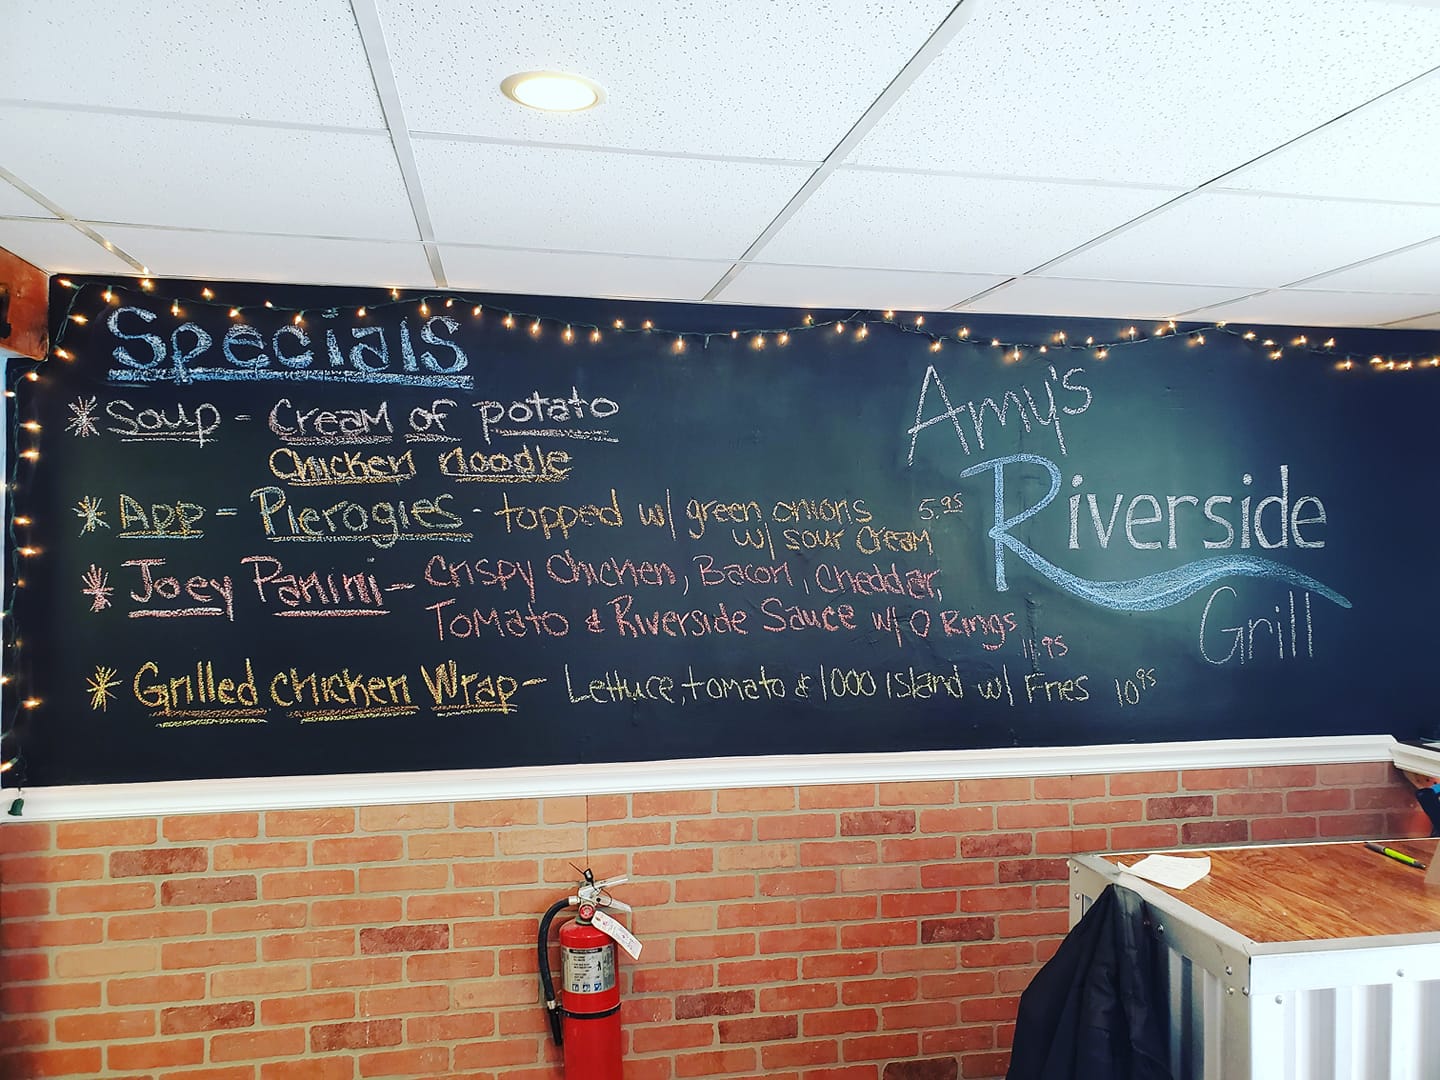 Specials
* Soup - Cream of potato
Chicken noodle
* App - Pierogies - topped w/ green onions 5.95
w/ sour cream
* Joey Panini - Crispy Chicken, Bacon, Cheddar,
Tomato & Riverside Sauce w/ O Rings
11.95
* Grilled chicken Wrap - Lettuce, tomato & 1000 island w/ Fries 10.95
Amy's
Riverside
Grill